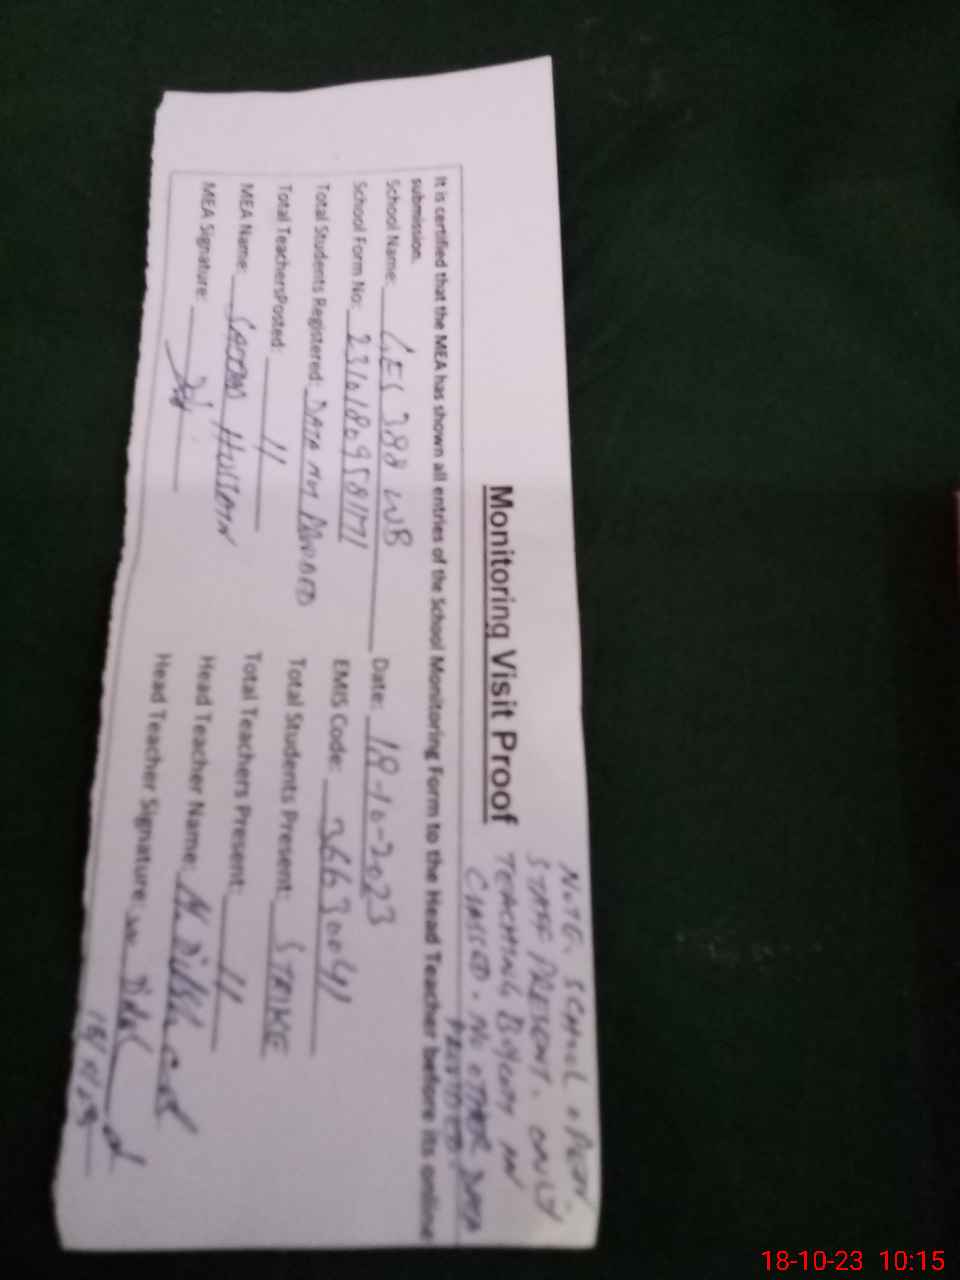 NOTE. SCHOOL OPEN
STAFF PRESENT. ONLY
TEACHING BOYCOTT IN
CLASSES. NO OTHER DATA
PROVIDED.
Monitoring Visit Proof
It is certified that the MEA has shown all entries of the School Monitoring Form to the Head Teacher before its online
submission.
School Name: 388 WB Date: 18-10-2023
School Form No: EMIS Code: 36630041
Total Students Registered: DATA NOT PROVIDED Total Students Present: STRIKE
Total TeachersPosted: 11 Total Teachers Present: 11
MEA Name: SAJJAD HUSSAIN Head Teacher Name:
MEA Signature: Head Teacher Signature:
18-10-23 10:15